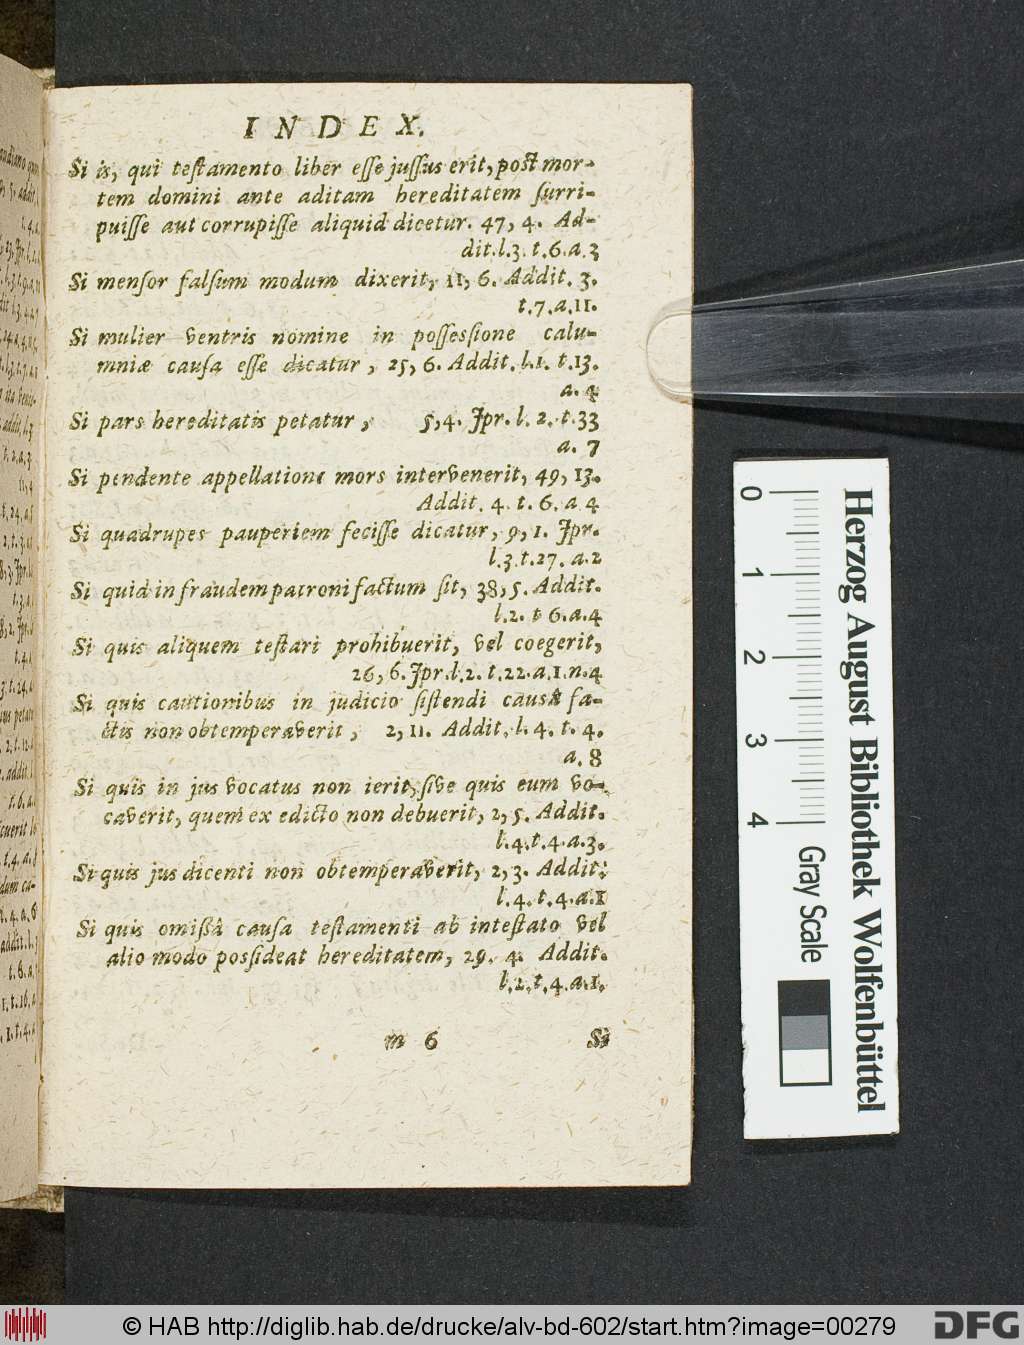 INDEX.
Si is, qui teſtamento liber eſſe juſſus erit, poſt mor-
tem domini ante aditam hereditatem ſurri-
puiſſe aut corrupiſſe aliquid dicetur. 47, 4. Ad-
dit. l. 3. t. 6. a. 3
Si menſor falſum modum dixerit, 11, 6. Addit. 3.
t. 7. a. 11.
Si mulier ventris nomine in poſſeſſione calu-
mniæ cauſa eſſe dicatur, 25, 6. Addit. l. 1. t. 13.
a. 4
Si pars hereditatis petatur, 5, 4. Jpr. l. 2. t. 33
a. 7
Si pendente appellatione mors intervenerit, 49, 13.
Addit. 4. t. 6. a 4
Si quadrupes pauperiem feciſſe dicatur, 9, 1. Jpr.
l. 3. t. 27. a. 2
Si quid in fraudem patroni factum ſit, 38, 5. Addit.
l. 2. t 6. a. 4
Si quis aliquem teſtari prohibuerit, vel coegerit,
26, 6. Jpr. l. 2. t. 22. a. 1. n. 4
Si quis cautionibus in judicio ſiſtendi causâ fa-
ctis non obtemperaverit, 2, 11. Addit. l. 4. t. 4.
a. 8
Si quis in jus vocatus non ierit, ſive quis eum vo-
caverit, quem ex edicto non debuerit, 2, 5. Addit.
l. 4. t. 4. a. 3.
Si quis jus dicenti non obtemperaverit, 2, 3. Addit.
l. 4. t. 4. a. 1
Si quis omißâ cauſa teſtamenti ab inteſtato vel
alio modo posſideat hereditatem, 29. 4. Addit.
l. 2. t. 4. a. 1.
m 6 Si
0 1 2 3 4
Herzog August Bibliothek Wolfenbüttel
Gray Scale
© HAB http://diglib.hab.de/drucke/alv-bd-602/start.htm?image=00279
DFG